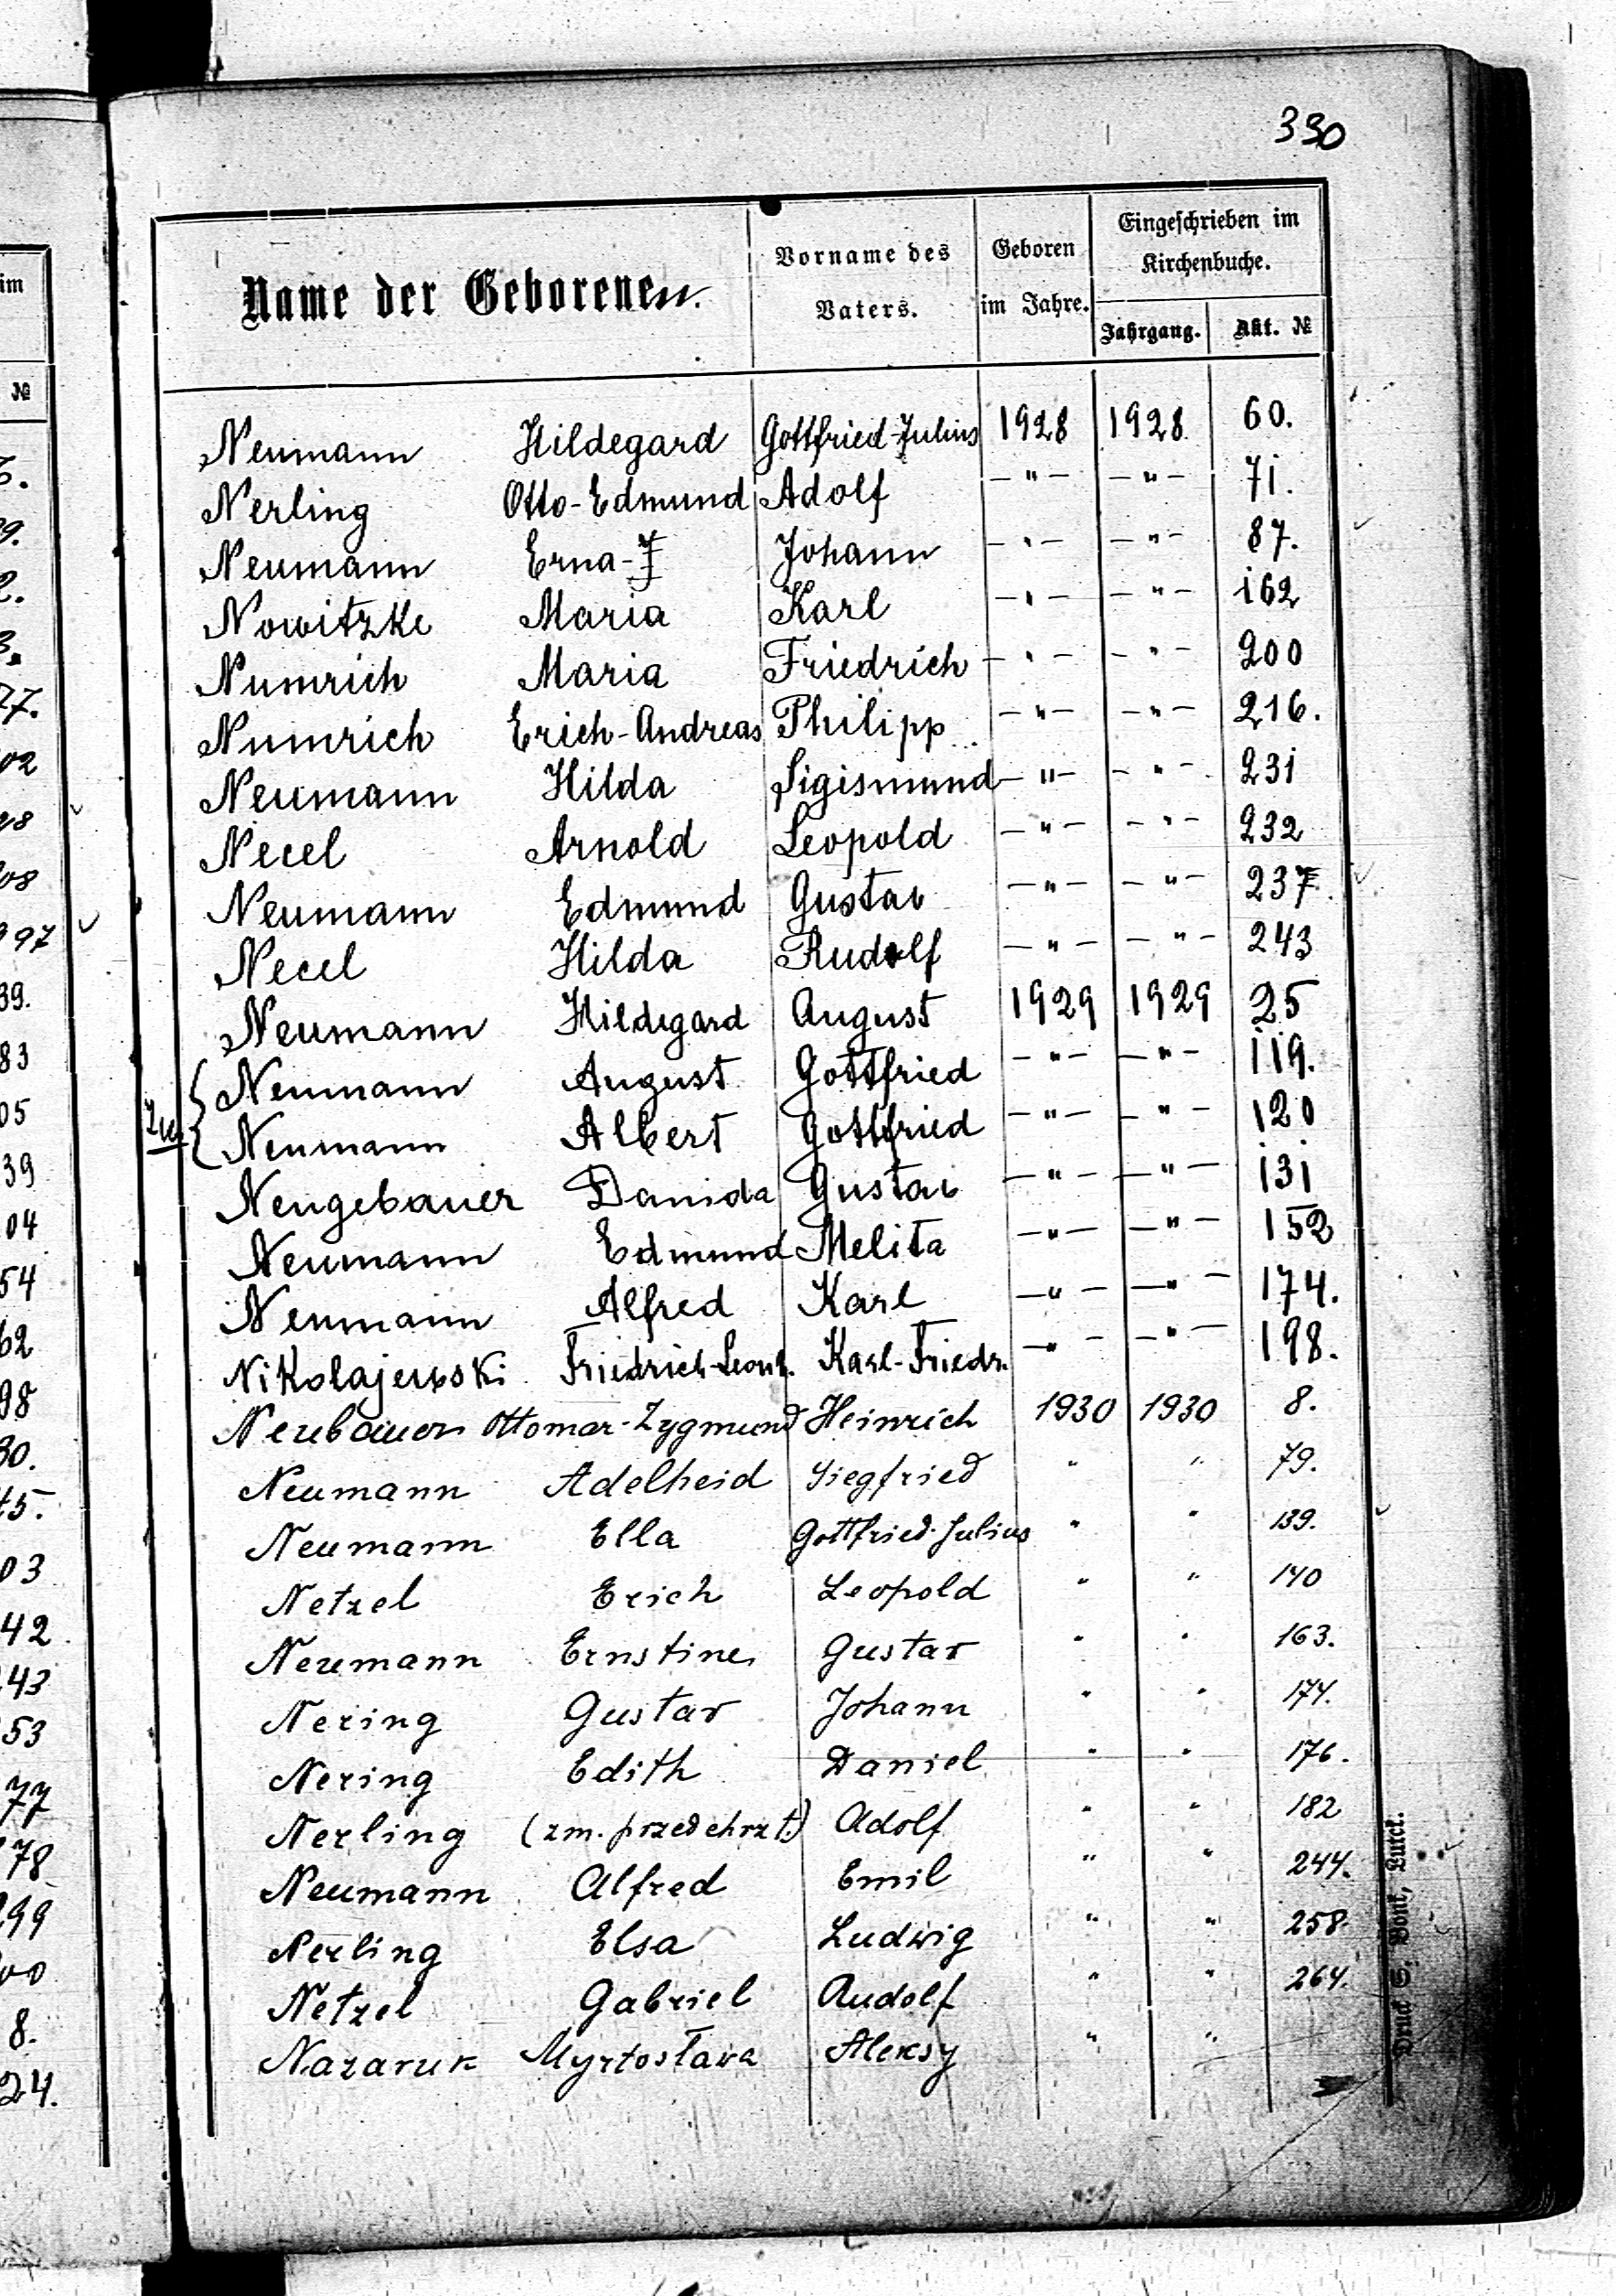 330
Name der Geborenen.
Vorname des Vaters.
Geboren im Jahre.
Eingeschrieben im Kirchenbuche.
Jahrgang.
Akt. №
Neumann Hildegard Gottfried-Julius 1928 1928 60.
Nerling Otto-Edmund Adolf — " — — " — 71.
Neumann Erna- Johann — " — — " — 87.
Nowitzke Maria Karl — " — — " — 162
Numrich Maria Friedrich — " — — " — 200
Numrich Erich-Andreas Philipp — " — — " — 216.
Neumann Hilda Sigismund — " — — " — 231
Necel Arnold Leopold — " — — " — 232
Neumann Edmund Gustav — " — — " — 237.
Necel Hilda Rudolf — " — — " — 243
Neumann Hildegard August 1929 1929 25
Neumann August Gottfried — " — — " — 119.
Neumann Albert Gottfried — " — — " — 120
Neugebauer Danida Gustav — " — — " — 131
Neumann Edmund Melita — " — — " — 152
Neumann Alfred Karl — " — — " — 174.
Nikolajewski Friedrich-Leonh. Karl-Friedr. — " — — " — 198.
Neubauer Ottomar-Zygmund Heinrich 1930 1930 8.
Neumann Adelheid Siegfried " " 79.
Neumann Ella Gottfried-Julius " " 139.
Netzel Erich Leopold " " 140
Neumann Ernstine Gustav " " 163.
Nering Gustav Johann " " 174.
Nering Edith Daniel " " 176.
Nerling (zm. przed chrzt.) Adolf " " 182
Neumann Alfred Emil " " 244.
Nerling Elsa Ludwig " " 258.
Netzel Gabriel Rudolf " " 264.
Nazaruk Myrosława Aleksy " "
Druck S. Bont, Lutck.
im
№